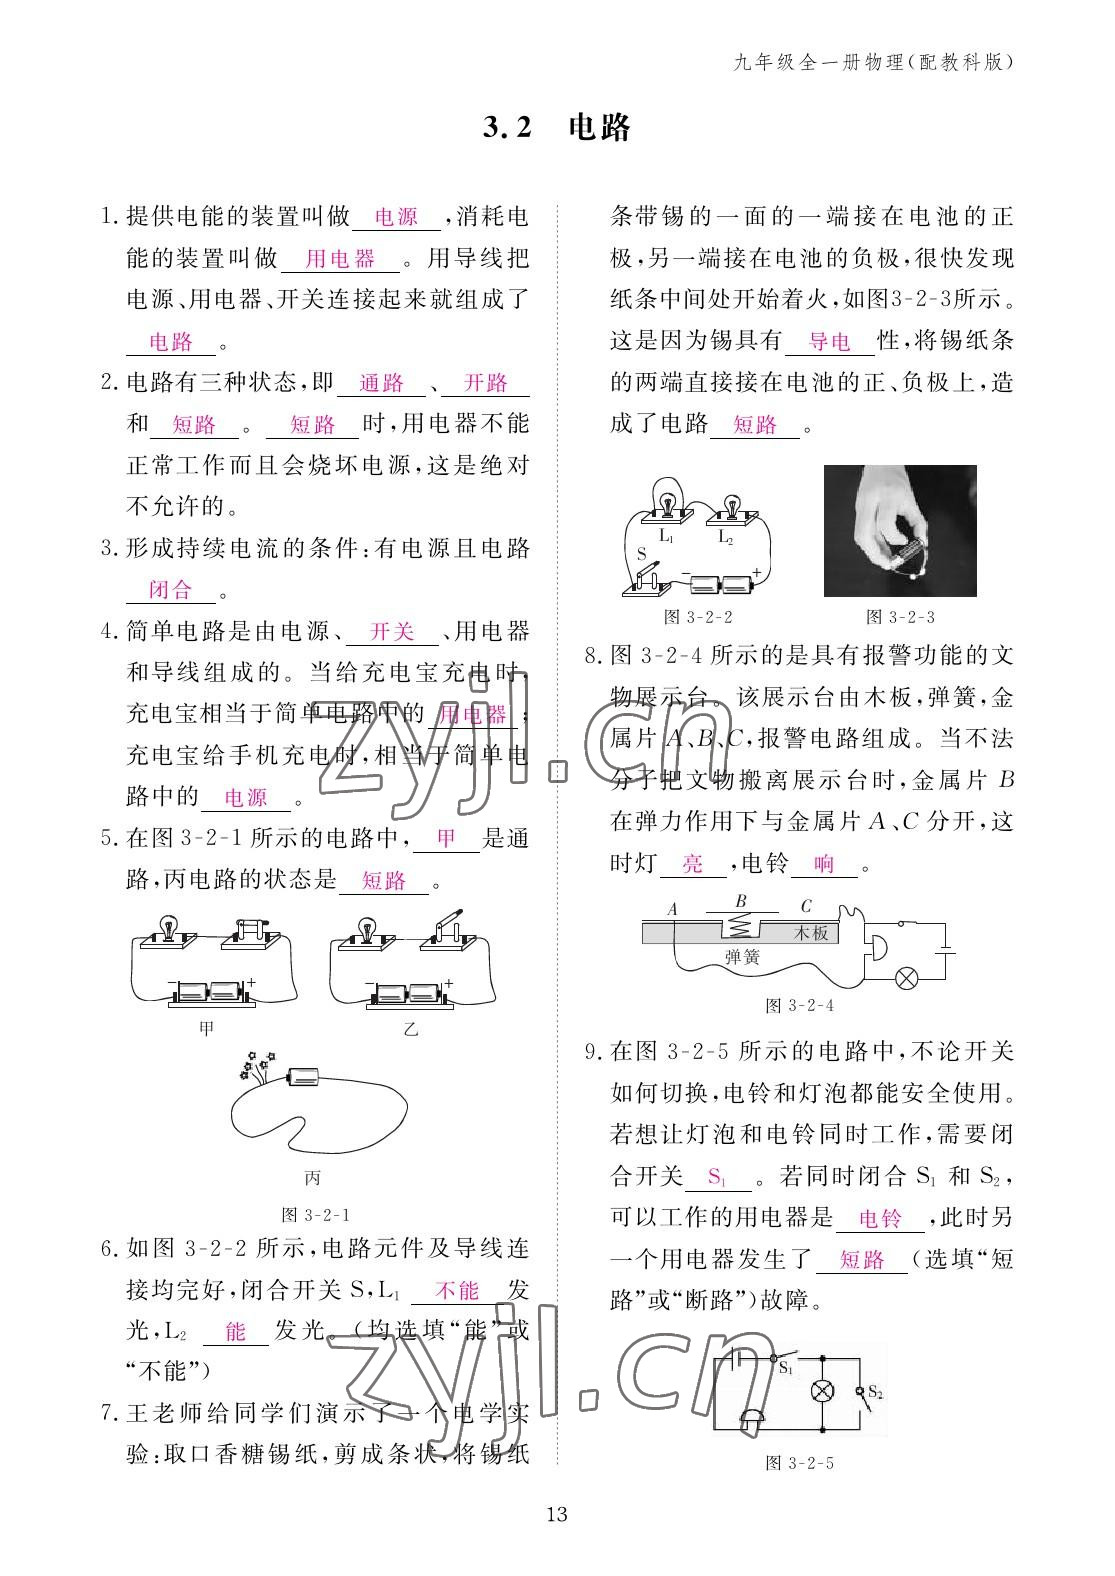 九年级全一册物理(配教科版)
3.2 电路
1. 提供电能的装置叫做 电源 ,消耗电
能的装置叫做 用电器 。用导线把
电源、用电器、开关连接起来就组成了
电路 。
2. 电路有三种状态,即 通路 、 开路
和 短路 。 短路 时,用电器不能
正常工作而且会烧坏电源,这是绝对
不允许的。
3. 形成持续电流的条件:有电源且电路
闭合 。
4. 简单电路是由电源、 开关 、用电器
和导线组成的。当给充电宝充电时,
充电宝相当于简单电路中的 用电器 ;
充电宝给手机充电时,相当于简单电
路中的 电源 。
5. 在图 3-2-1 所示的电路中, 甲 是通
路,丙电路的状态是 短路 。
- +
甲
- +
乙
丙
图 3-2-1
6. 如图 3-2-2 所示,电路元件及导线连
接均完好,闭合开关 S,L1 不能 发
光,L2 能 发光。(均选填“能”或
“不能”)
7. 王老师给同学们演示了一个电学实
验:取口香糖锡纸,剪成条状,将锡纸
条带锡的一面的一端接在电池的正
极,另一端接在电池的负极,很快发现
纸条中间处开始着火,如图3-2-3所示。
这是因为锡具有 导电 性,将锡纸条
的两端直接接在电池的正、负极上,造
成了电路 短路 。
L1 L2
S - +
图 3-2-2
图 3-2-3
8. 图 3-2-4 所示的是具有报警功能的文
物展示台。该展示台由木板,弹簧,金
属片 A、B、C,报警电路组成。当不法
分子把文物搬离展示台时,金属片 B
在弹力作用下与金属片 A、C 分开,这
时灯 亮 ,电铃 响 。
A B C
木板
弹簧
图 3-2-4
9. 在图 3-2-5 所示的电路中,不论开关
如何切换,电铃和灯泡都能安全使用。
若想让灯泡和电铃同时工作,需要闭
合开关 S1 。若同时闭合 S1 和 S2,
可以工作的用电器是 电铃 ,此时另
一个用电器发生了 短路 (选填“短
路”或“断路”)故障。
S1
S2
图 3-2-5
13
zyjl.cn
zyjl.cn